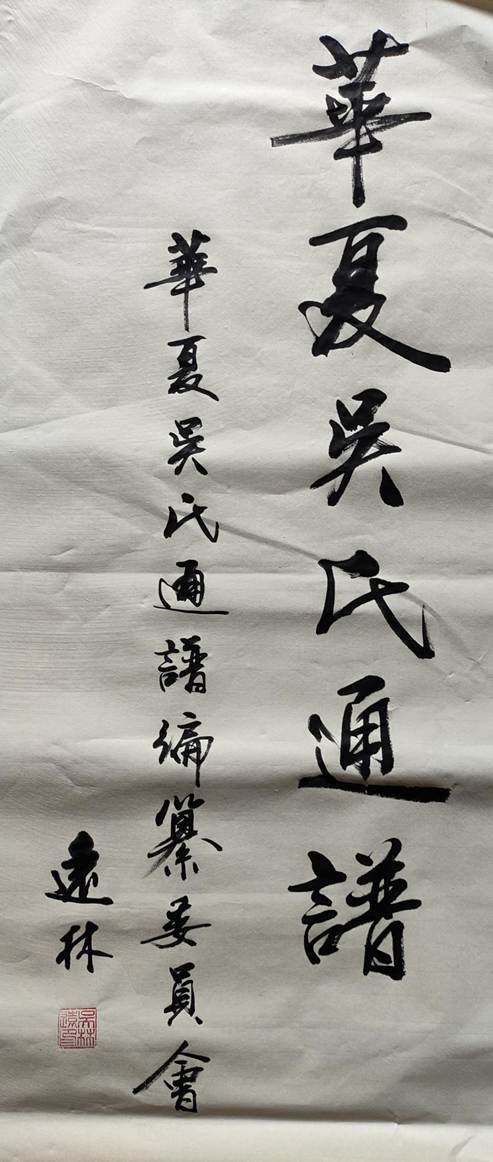 華夏吳氏通譜
華夏吳氏通譜編纂委員會
遠林